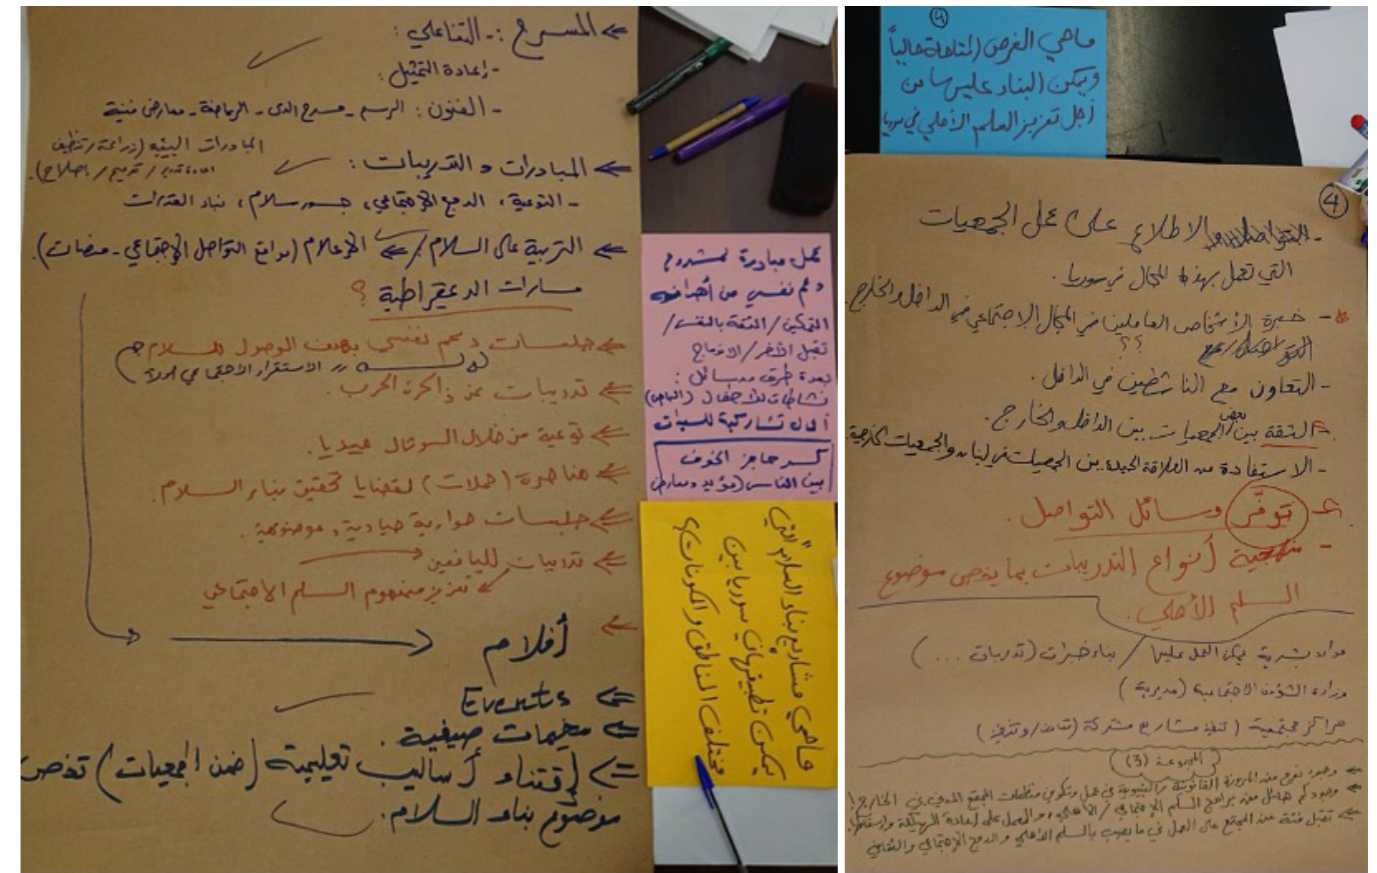 المسرح: - التفاعلي:
- إعادة التمثيل:
- الفنون: الرسم - مسرح الدمى - الرياضة - معارض فنية
المبادرات البيئية (زراعة/تنظيف
إعادة تدوير/ترميم/إصلاح).
المبادرات والتدريبات:
- التوعية، الدمج الإجتماعي، جسور سلام، بناء القدرات
التربية على السلام / الإعلام (مواقع التواصل الإجتماعي - منصات).
مسارات الديمقراطية ؟
جلسات دعم نفسي بهدف الوصول للسلام
الاستقرار الاجتماعي أولاً
تدريبات عن ذاكرة الحرب.
توعية من خلال السوشال ميديا.
مناصرة (حملات) لقضايا تحقيق بناء السلام.
جلسات حوارية حيادية، موضوعية.
تدريبات لليافعين
تعزيز مفهوم السلم الاجتماعي
أفلام
Events
مخيمات صيفية.
إقتناء أساليب تعليمية (ضمن الجمعيات) تخص
موضوع بناء السلام.
عمل مبادرة لمشروع
دعم نفسي من أهدافه
التمكين / الثقة بالنفس /
تقبل الآخر / الاندماج
بعدة طرق ووسائل:
نشاطات للأطفال
أعمال تشاركية للسيدات
كسر حاجز الخوف
بين الناس (مؤيد ومعارض
ماهي مشاريع بناء السلام التي
يمكن تطبيقها في سوريا بين
مختلف المناطق والمكونات؟
(4)
ماهي الفرص المتاحة حالياً
ويمكن البناء عليها من
أجل تعزيز السلم الأهلي في سوريا
4
- الاطلاع على عمل الجمعيات
التي تعمل بهذا المجال في سوريا.
- خبرة الأشخاص العاملين في المجال الاجتماعي في الداخل والخارج.
؟؟
- التعاون مع الناشطين في الداخل.
- الثقة بين بعض الجمعيات بين الداخل والخارج.
- الاستفادة من العلاقة الجيدة بين الجمعيات في لبنان والجمعيات الخارجية.
توفّر وسائل التواصل.
- منهجية أنواع التدريبات بما يخص موضوع
السلم الأهلي.
موارد بشرية يمكن العمل عليها / بناء خبرات (تدريبات ...)
وزارة الشؤون الاجتماعية (مديرية)
مراكز مجتمعية (تنفيذ مشاريع مشتركة
المجموعة (3)
وجود نوع من المرونة القانونية في عمل وتكوين منظمات المجتمع المدني في الخارج!
وجود كم هائل من برامج السلم الإجتماعي / الأهلي، والعمل على إعادة الهيكلة
تقبل فئة من المجتمع على العمل في ما يصب بالسلم الأهلي والدمج الإجتماعي والثقافي